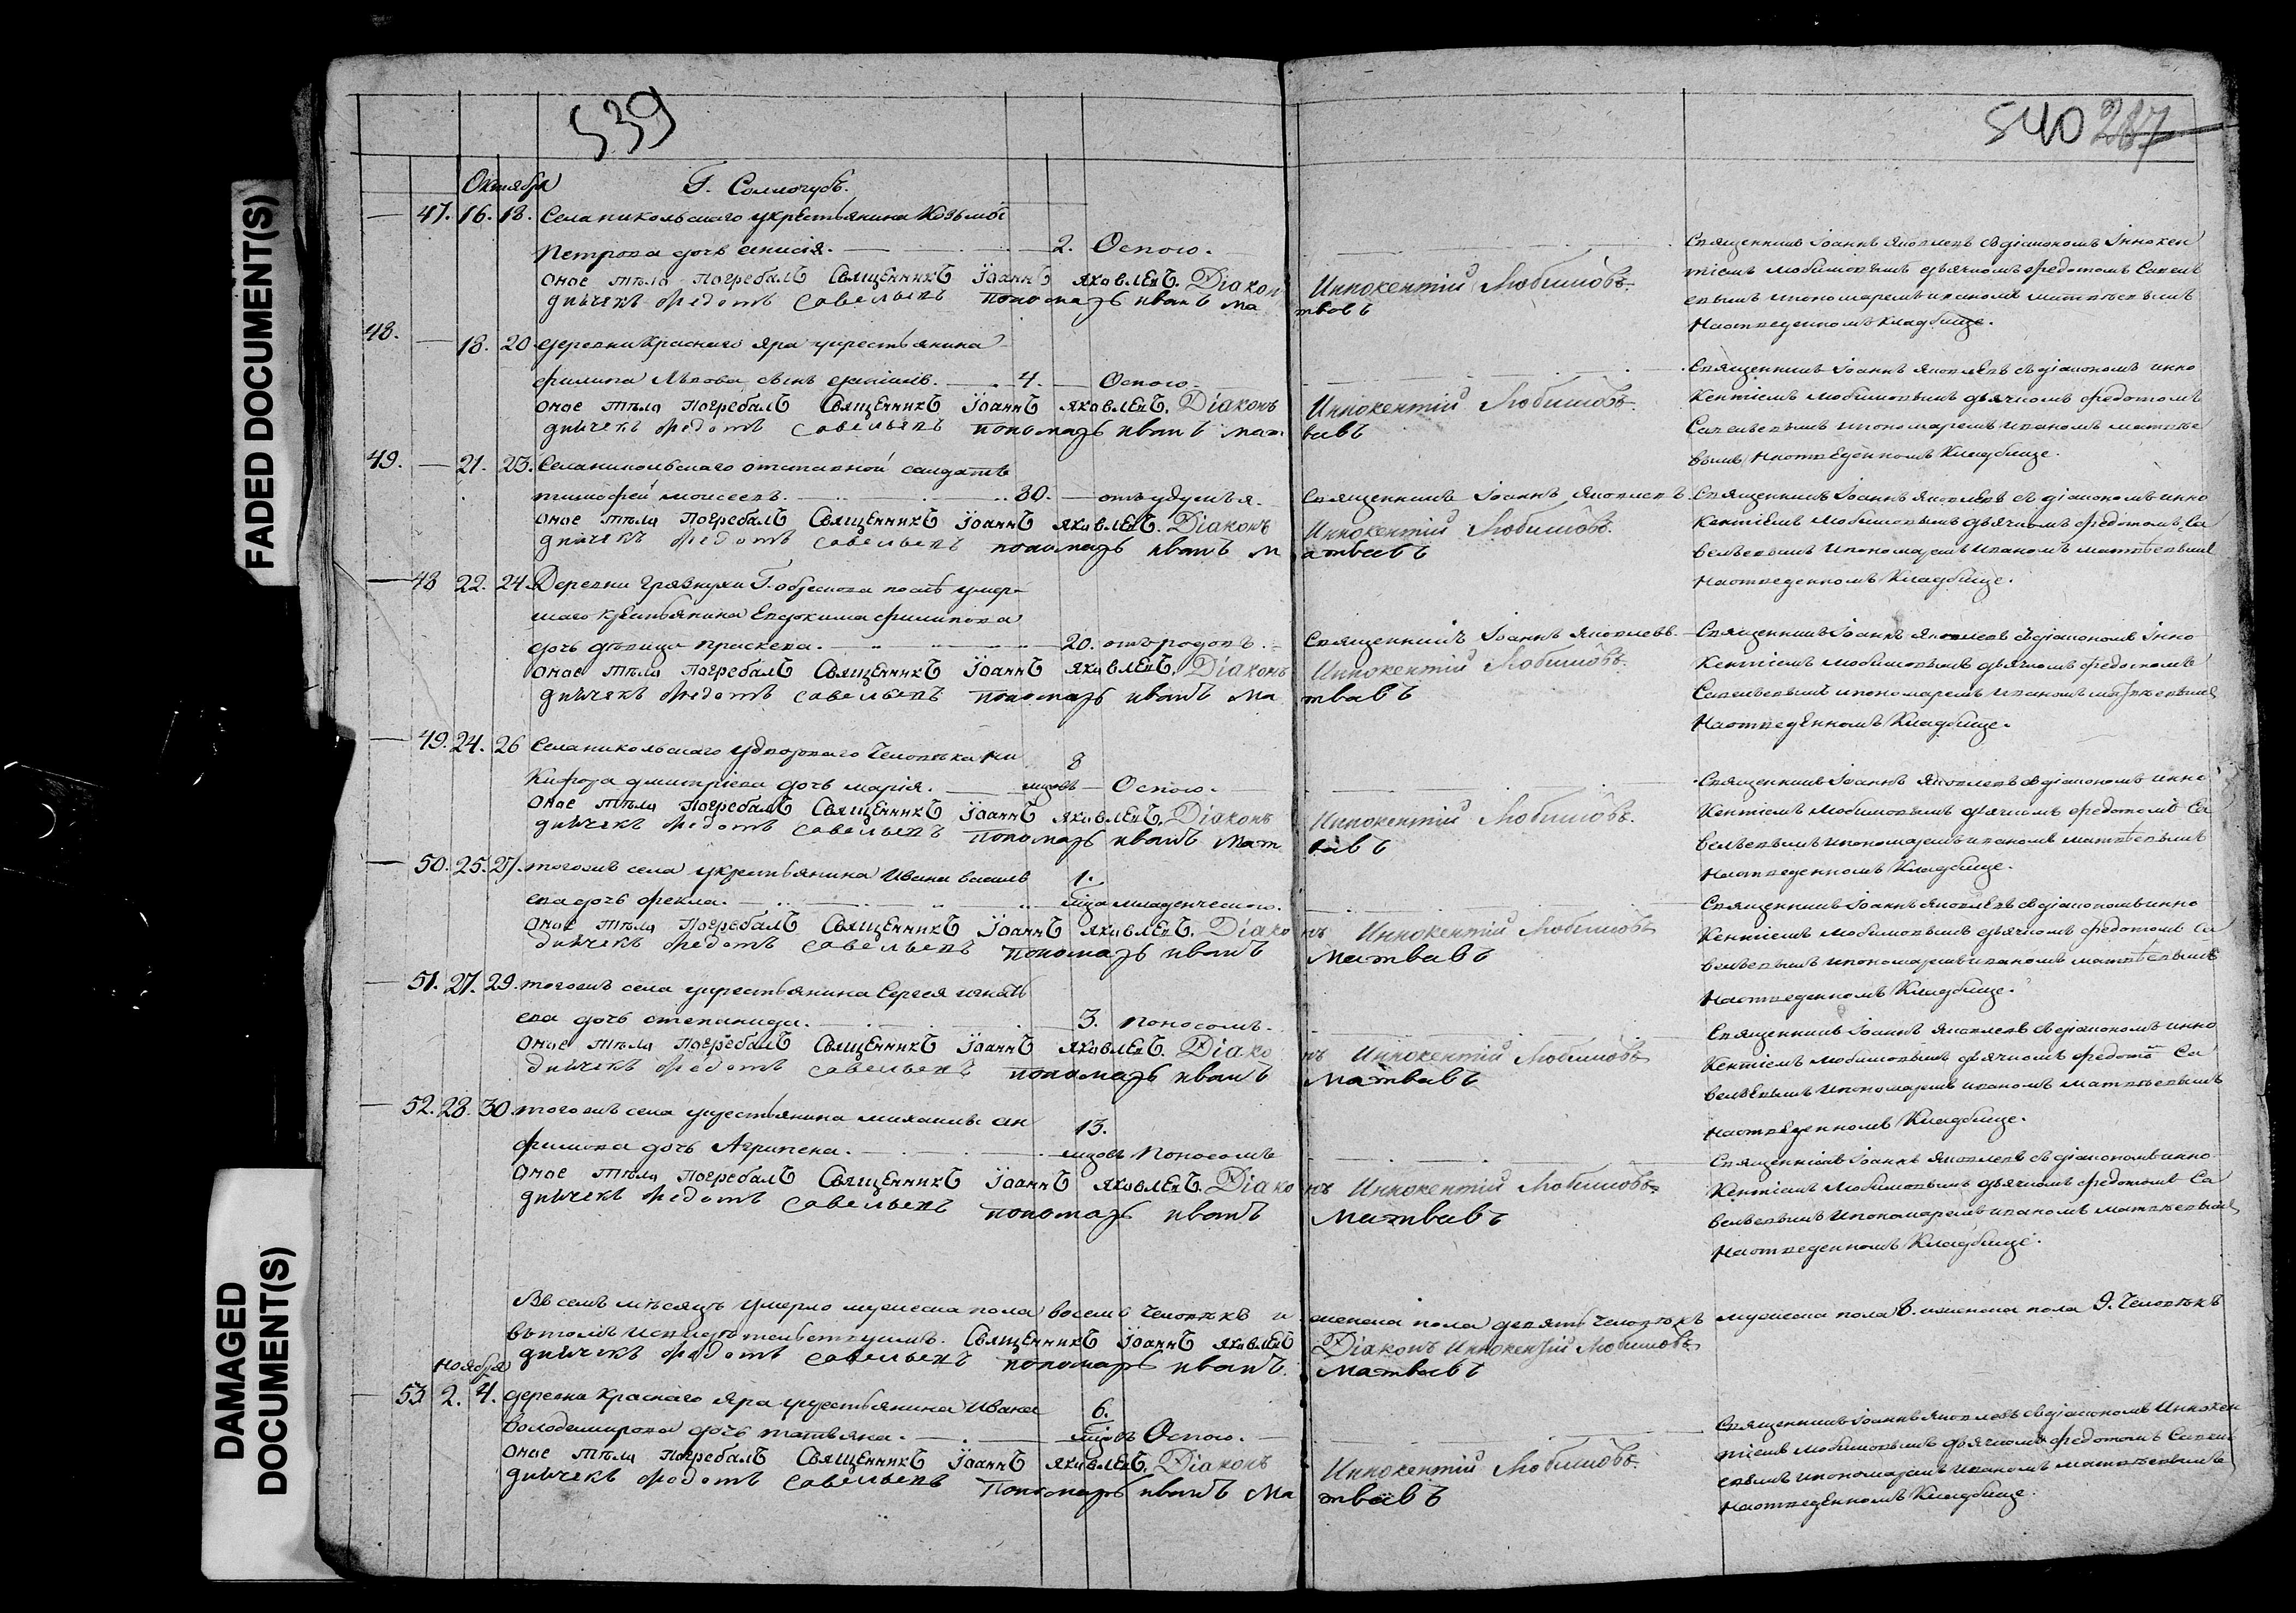 FADED DOCUMENT(S)
DAMAGED DOCUMENT(S)
539
540 287
Октября Г. Соллогубъ.
47. 16. 18. Села никольскаго укрестьянина Козьмы
Петрова дочь анисія. 2. Оспою.
оное тѣло погребалъ Священникъ Іоаннъ яковлевъ. Діакон Иннокентій Любимовъ.
дьячекъ Федотъ савельевъ пономарь иванъ ма твевъ
Священникъ Іоаннъ Яковлевъ съ діакономъ Іннокен
тіемъ Любимовымъ дьячкомъ Федотомъ Савель
евымъ ипономаремъ иваномъ матвѣевымъ
наотведенномъ кладбище.
48. 18. 20. деревни Краснаго яра укрестьянина
филипа Львова сынъ 4. Оспою.
оное тѣло погребалъ Священникъ Іоаннъ яковлевъ. Діаконъ Иннокентій Любимовъ.
дьячекъ Федотъ савельевъ пономарь иванъ мат вевъ
Священникъ Іоаннъ Яковлевъ съ діакономъ инно
кентіемъ Любимовымъ дьячкомъ Федотомъ
Савельевымъ ипономаремъ иваномъ матвѣе
вымъ наотведенномъ Кладбище.
49. 21. 23. Села никольскаго отставной салдатъ
тимофей моисеевъ. 80. отъ удушья. Священникъ Іоаннъ Яковлевъ.
оное тѣло погребалъ Священникъ Іоаннъ яковлевъ. Діаконъ Иннокентій Любимовъ.
дьячекъ Федотъ савельевъ пономарь иванъ м атвевъ
Священникъ Іоаннъ Яковлевъ съ діакономъ инно
кентіемъ Любимовымъ дьячкомъ Федотомъ Са
вельевымъ ипономаремъ иваномъ матвѣевымъ
наотведенномъ Кладбище.
48 22. 24. Деревни Грязнухи Г. обрескова послѣ умер
шаго крестьянина Евдокима филипова
дочь дѣвица праскева. 20. отъ родовъ. Священникъ Іоаннъ Яковлевъ.
оное тѣло погребалъ Священникъ Іоаннъ яковлевъ. Діаконъ Иннокентій Любимовъ.
дьячекъ Федотъ савельевъ пономарь иванъ ма твевъ
Священникъ Іоаннъ Яковлевъ съ діакономъ Інно
кентіемъ Любимовымъ дьячкомъ Федотомъ
Савельевымъ ипономаремъ иваномъ матвѣевымъ
наотведенномъ Кладбище.
49. 24. 26 Села никольскаго удворваго Человѣка ни 8
Кифора дмитріева дочь марія. мцовъ Оспою.
оное тѣло погребалъ Священникъ Іоаннъ яковлевъ. Діаконъ Иннокентій Любимовъ.
дьячекъ Федотъ савельевъ пономарь иванъ мат вевъ
Священникъ Іоаннъ Яковлевъ съ діакономъ инно
кентіемъ Любимовымъ дьячкомъ Федотомъ Са
вельевымъ ипономаремъ иваномъ матвѣевымъ
наотведенномъ Кладбище.
50. 25. 27. тогожъ села укрестьянина Ивана василь 1.
ева дочь фекла. мца младенческою.
оное тѣло погребалъ Священникъ Іоаннъ яковлевъ. Діако нъ Иннокентій Любимовъ
дьячекъ Федотъ савельевъ пономарь иванъ Матвевъ
Священникъ Іоаннъ Яковлевъ съ діакономъ инно
кентіемъ Любимовымъ дьячкомъ Федотомъ Са
вельевымъ ипономаремъ иваномъ матвѣевымъ
наотведенномъ Кладбище.
51. 27. 29. тогожъ села укрестьянина Сергея игнать
ева дочь степанида. 3. поносомъ.
оное тѣло погребалъ Священникъ Іоаннъ яковлевъ. Діако нъ Иннокентій Любимовъ
дьячекъ Федотъ савельевъ пономарь иванъ Матвевъ
Священникъ Іоаннъ Яковлевъ съ діакономъ инно
кентіемъ Любимовымъ дьячкомъ Федото Са
вельевымъ ипономаремъ иваномъ матвѣевымъ
наотведенномъ Кладбище.
52. 28. 30. тогожъ села укрестьянина михаилы ан 13.
филова дочь Агрипена. мцовъ поносомъ
оное тѣло погребалъ Священникъ Іоаннъ яковлевъ. Діако нъ Иннокентій Любимовъ
дьячекъ Федотъ савельевъ пономарь иванъ Матвевъ
Священникъ Іоаннъ Яковлевъ съ діакономъ инно
кентіемъ Любимовымъ дьячкомъ Федотомъ Са
вельевымъ ипономаремъ иваномъ матвѣевымъ
наотведенномъ Кладбище.
Въ семъ мѣсяцѣ умерло мужеска пола восемь человѣкъ и женска пола девять человѣкъ мужеска пола 8. иженска пола 9. Человѣкъ
вътомъ исвидѣтельствуемъ. Священникъ Іоаннъ яковлевъ Діаконъ Иннокентій Любимовъ
дьячекъ Федотъ савельевъ пономарь иванъ Матвевъ
Ноября
53 2. 4. деревни Краснаго яра укрестьянина Ивана 6.
володимирова дочь татьяна. мцовъ Оспою.
оное тѣло погребалъ Священникъ Іоаннъ яковлевъ. Діаконъ Иннокентій Любимовъ.
дьячекъ Федотъ савельевъ Пономарь иванъ Ма твевъ
Священникъ Іоаннъ Яковлевъ съ діакономъ Иннокен
тіемъ Любимовымъ дьячкомъ Федотомъ Савель
евымъ ипономаремъ иваномъ матвѣевымъ
наотведенномъ Кладбище.